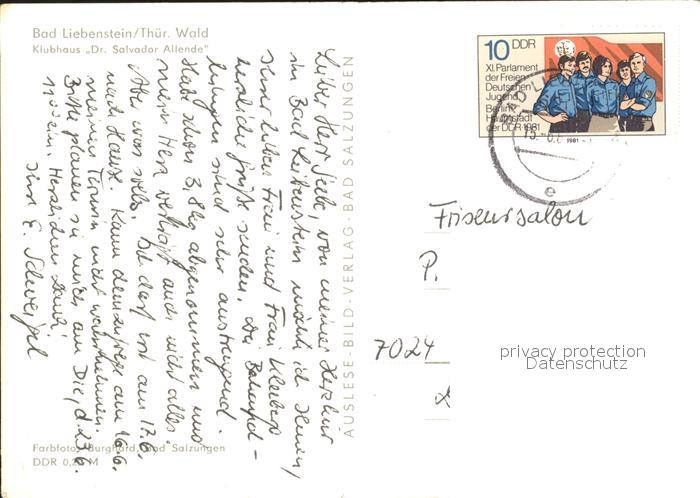 Bad Liebenstein/Thür. Wald
Klubhaus „Dr. Salvador Allende"
Lieber Herr Seibe, von meiner Herzkur
in Bad Liebenstein möcht ich Ihnen,
Ihrer lieben Frau und Frau Kleiber
herzliche Grüße senden. Die Behand-
lungen sind sehr anstrengend.
Habe schon 3,8kg abgenommen und
mein Herz verträgt auch nicht alles.
Aber was solls. Ich darf erst am 17.6.
nach Hause. Kann demzufolge am 16.6.
meinen Termin nicht wahrnehmen.
Bitte planen sie mich am Die, d. 23.6.
ein. Herzlichen Dank!
Ihre E. Schweigel
AUSLESE-BILD-VERLAG BAD SALZUNGEN
Farbfoto: Burghard, Bad Salzungen
DDR 0, M
10 DDR
XI. Parlament
der Freien
Deutschen
Jugend
Berlin
Hauptstadt
der DDR 1981
1981
BAD LI
e
Friseursalon
P.
7024
L
privacy protection
Datenschutz